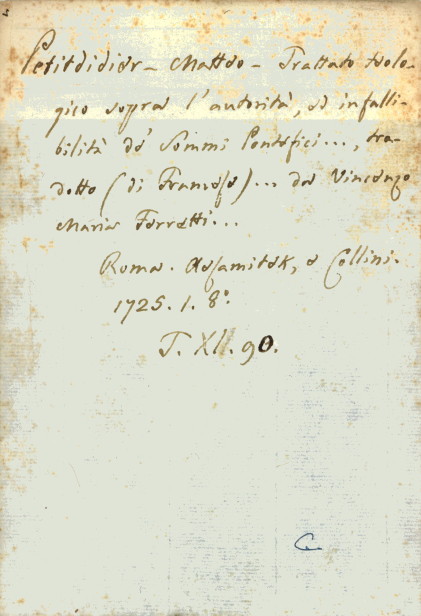 Petitdidier - Matteo - Trattato teolo-
gico sopra l'autorità, ed infalli-
bilità de' Sommi Pontefici..., tra-
dotto (di Francese)... da Vincenzo
Maria Ferretti...
Roma. Rosamitek, e Collini.
1725. 1. 8°.
T. XII. 90.